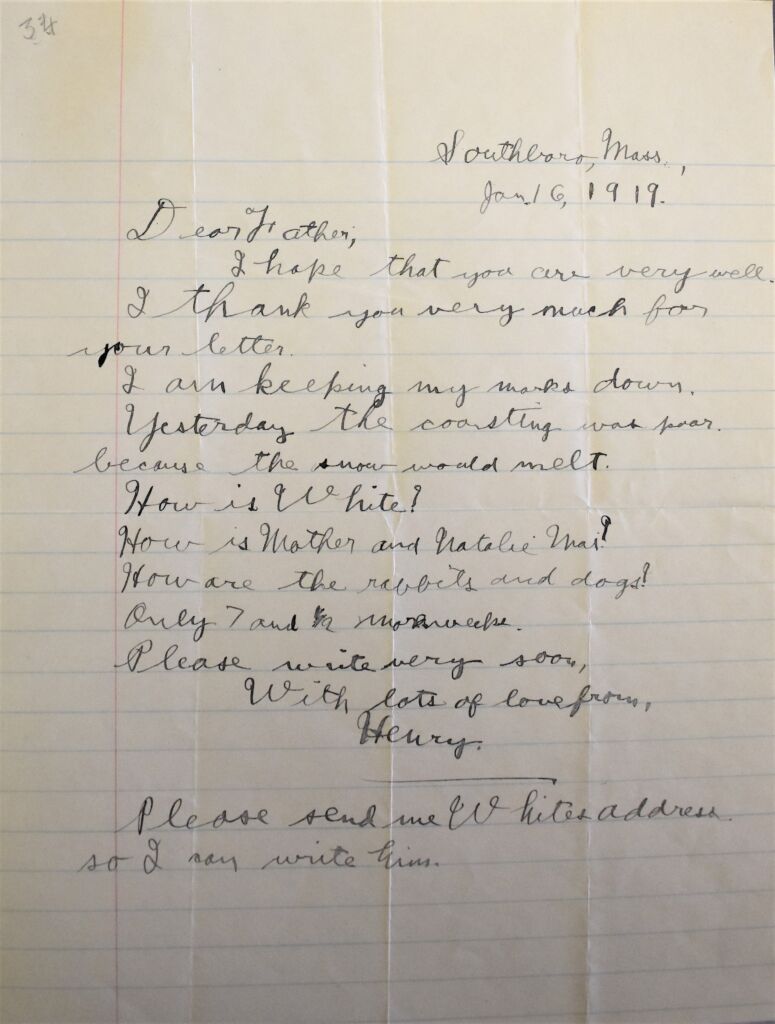 Southboro, Mass.,
Jan. 16, 1919.
Dear Father,
I hope that you are very well.
I thank you very much for
your letter.
I am keeping my marks down.
Yesterday the coasting was poor.
because the snow would melt.
How is White?
How is Mother and Natalie Mai?
How are the rabbits and dogs?
Only 7 and 1/2 more weeks.
Please write very soon,
With lots of love from,
Henry.
Please send me Whites address.
so I can write him.